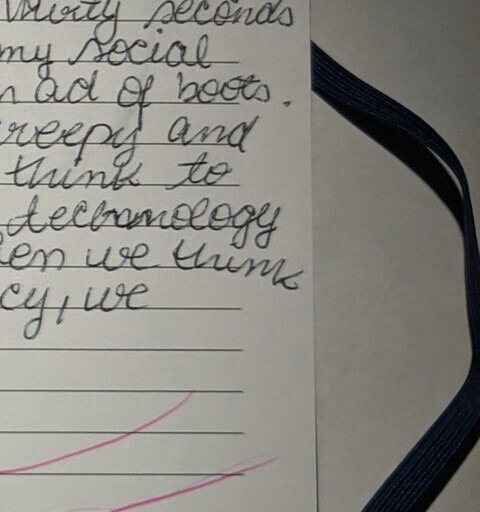 thirty seconds
my social
n ad of boots.
reepy and
think to
technology
en we think
cy, we